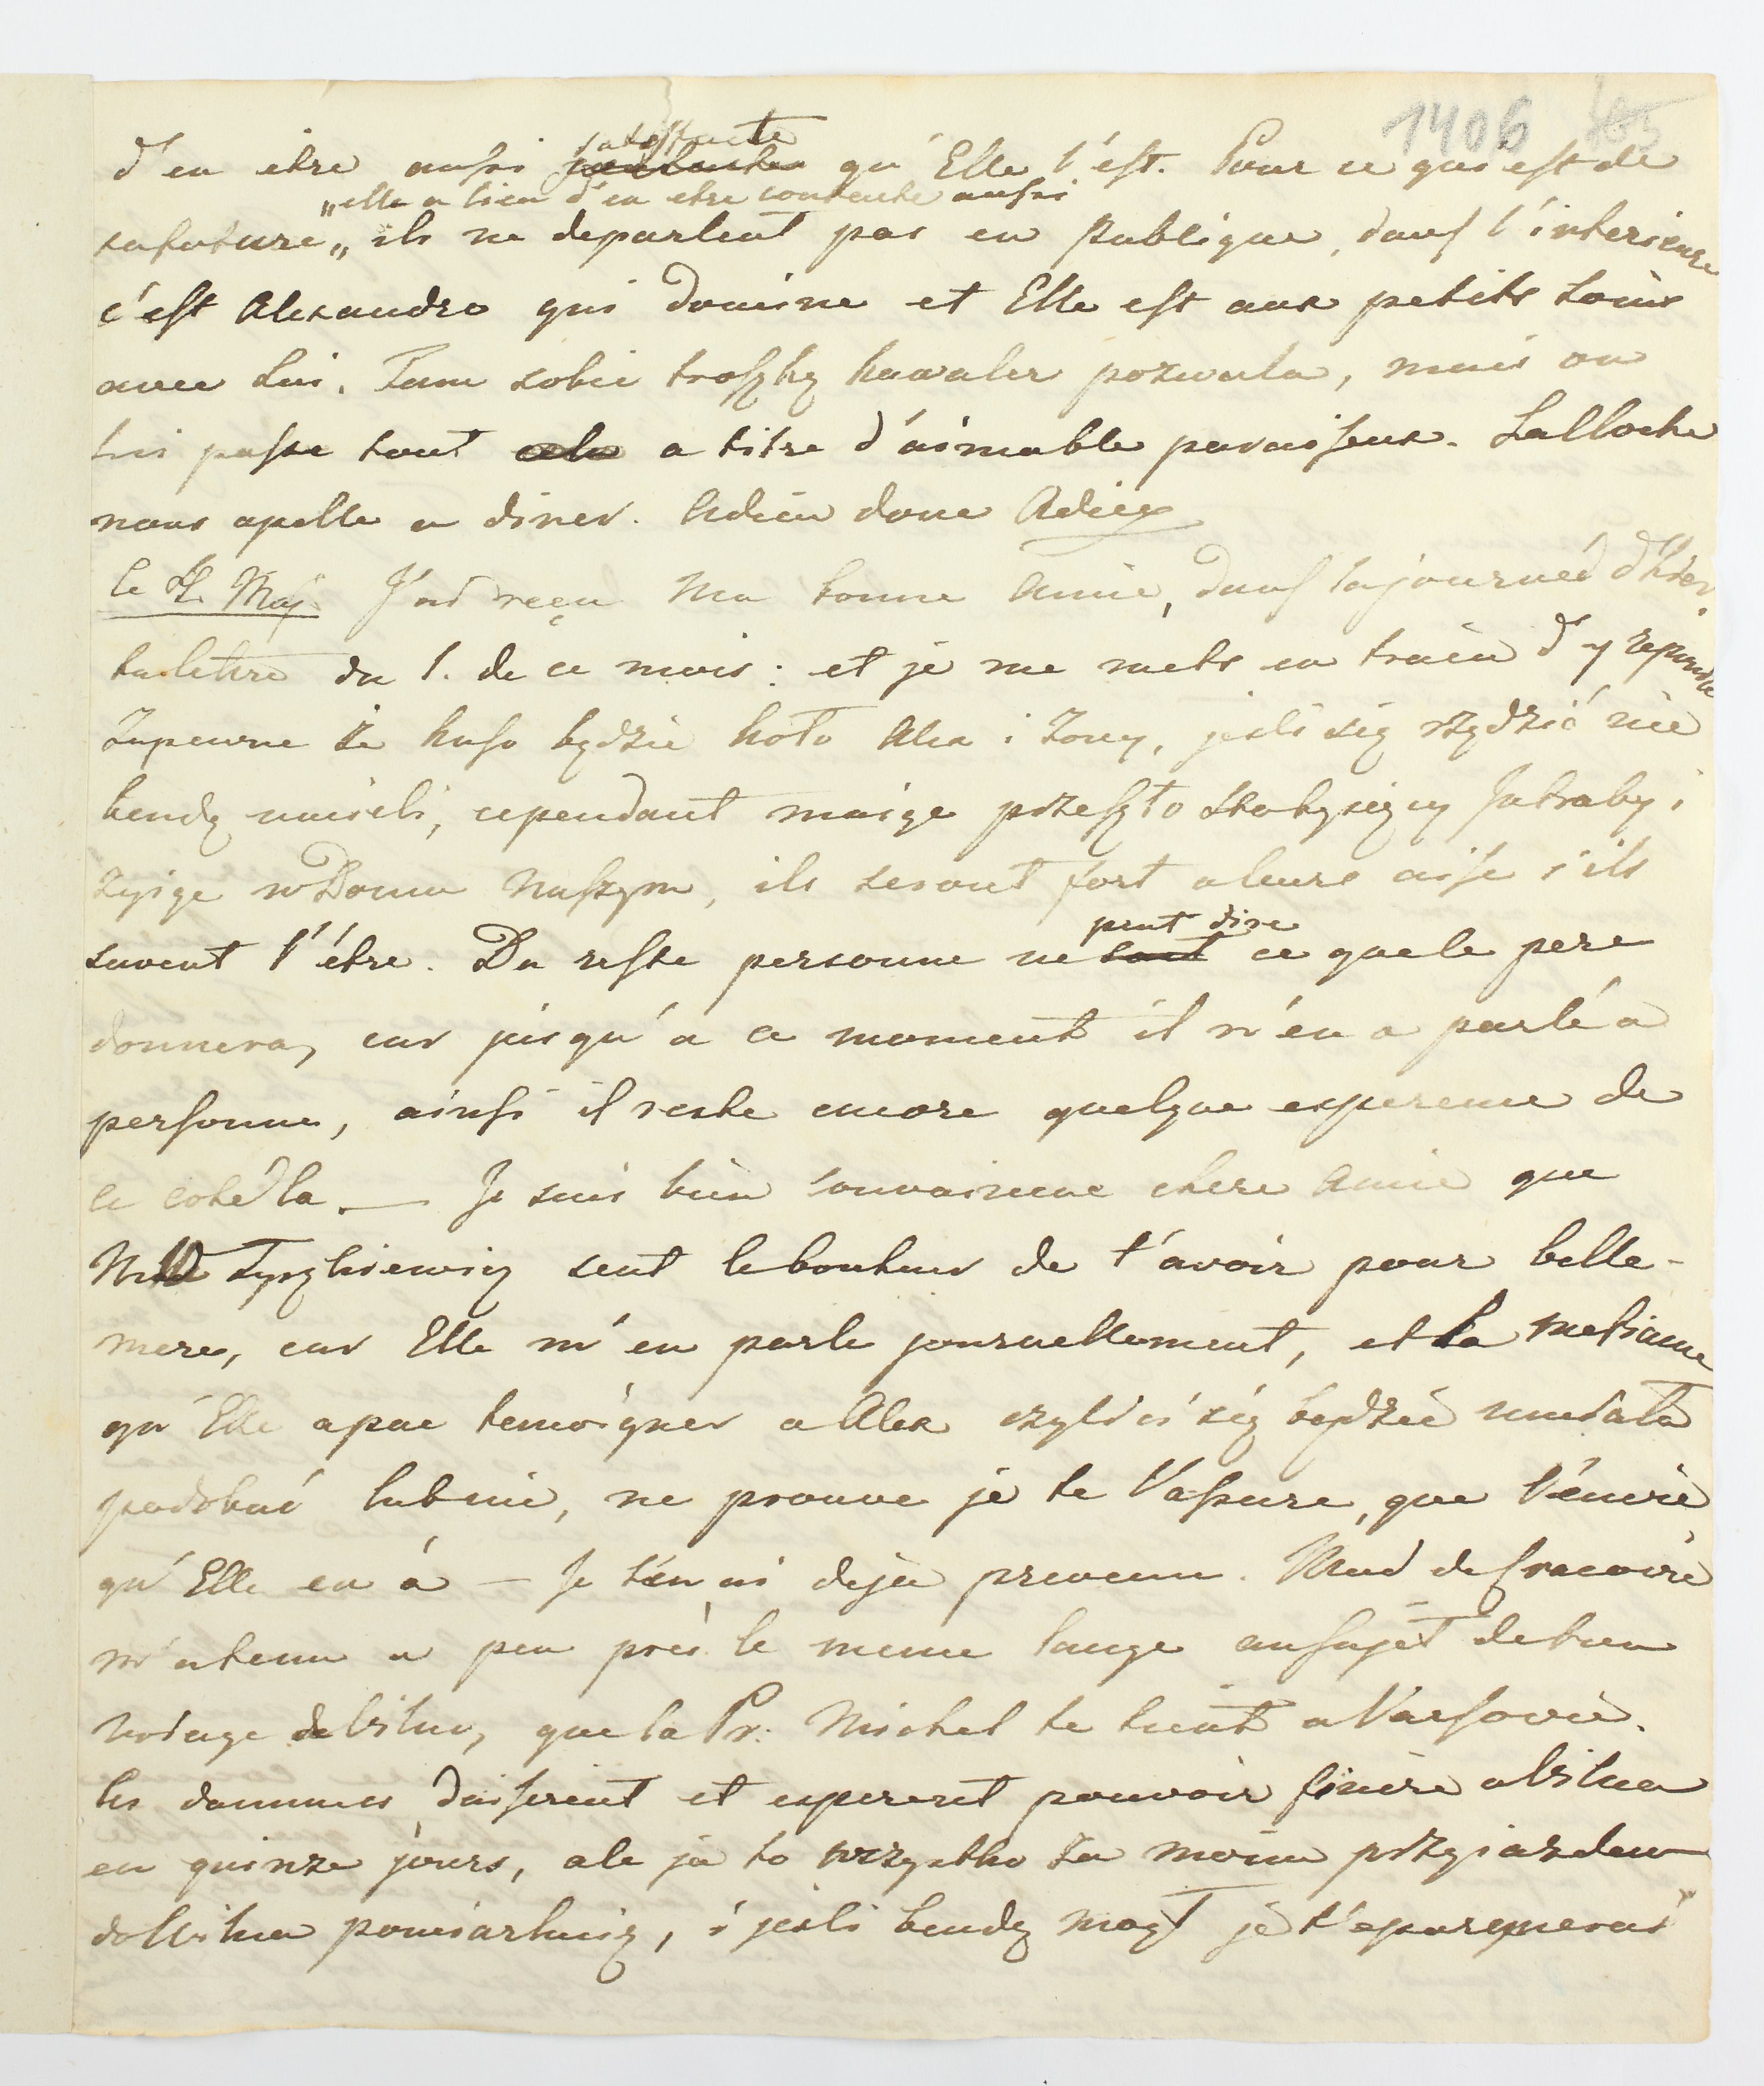 1406
d'en etre aussi satisfaite qu'Elle l'est. Pour ce qui est de
„elle a lieu d'en etre contente aussi
safuture„ ils ne departent pas en Publique, dans l'interieure
c'est Alexandre qui domine et Elle est aux petits soins
avec Lui. Tam sobie troszkę kawaler pozwala, mais on
lui passe tout cela a titre d'aimable paraisseux. La cloche
nous apelle a diner. Adieu donc Adieu
le Maj. J'ai reçu Ma bonne Amie, dans la journeé d'hier
ta lettre du 1. de ce mois: et je me mets en train d'y repondre
Zapewne że kuso będzie koło Alex i Zony, jesli się rządzić nie
bendą umieli, cependant maiąc przeszło stotysięcy Intraty i
zyiąc w Domu Naszym, ils seront fort a leurs aise s'ils
savent l'être. Du reste personne ne peut dire ce que le pere
donnera, car jusqu'a ce moment il n'en a parlé a
personne, ainsi il reste encore quelque esperence de
ce coté la. — Je suis bien convaincue chere Amie que
Mlle Tyszkiewicz sent le bonheur de t'avoir pour belle-
mere, car Elle m'en parle journellement, et la mefiance
qu'Elle a pue temoigner a Alex czyli ci się będzie umiała
podobać lub nie, ne prouve je te l'assure, que l'envie
qu'Elle en á — Je t'en ai deja prevenu. Mad de
m'a tenu a peu près le meme langage au sujet de ton
de Vilna, que la Pr: Michel te tient a Varsovie.
les dammes desirent et esperent pouvoir finire a Vilna
en quinze jours, ale ja to wszystko za moim przyiazdem
do Wilna pomiarkuię, i jesli bendę mogł je t'eparguerais